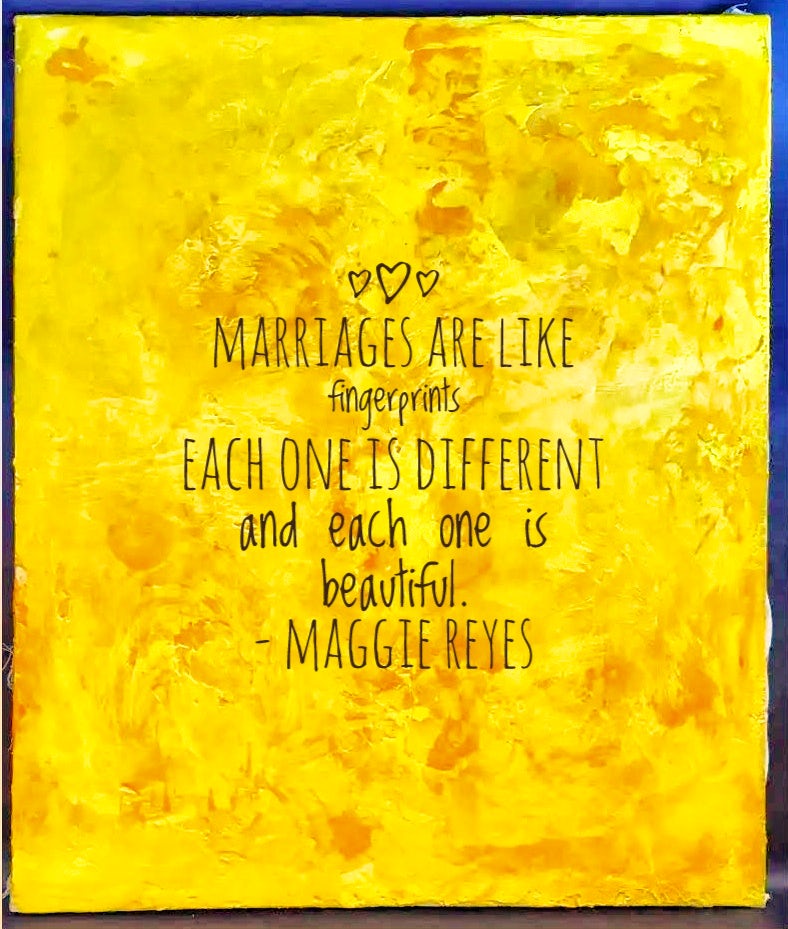 MARRIAGES ARE LIKE
fingerprints
EACH ONE IS DIFFERENT
and each one is
beautiful.
- MAGGIE REYES